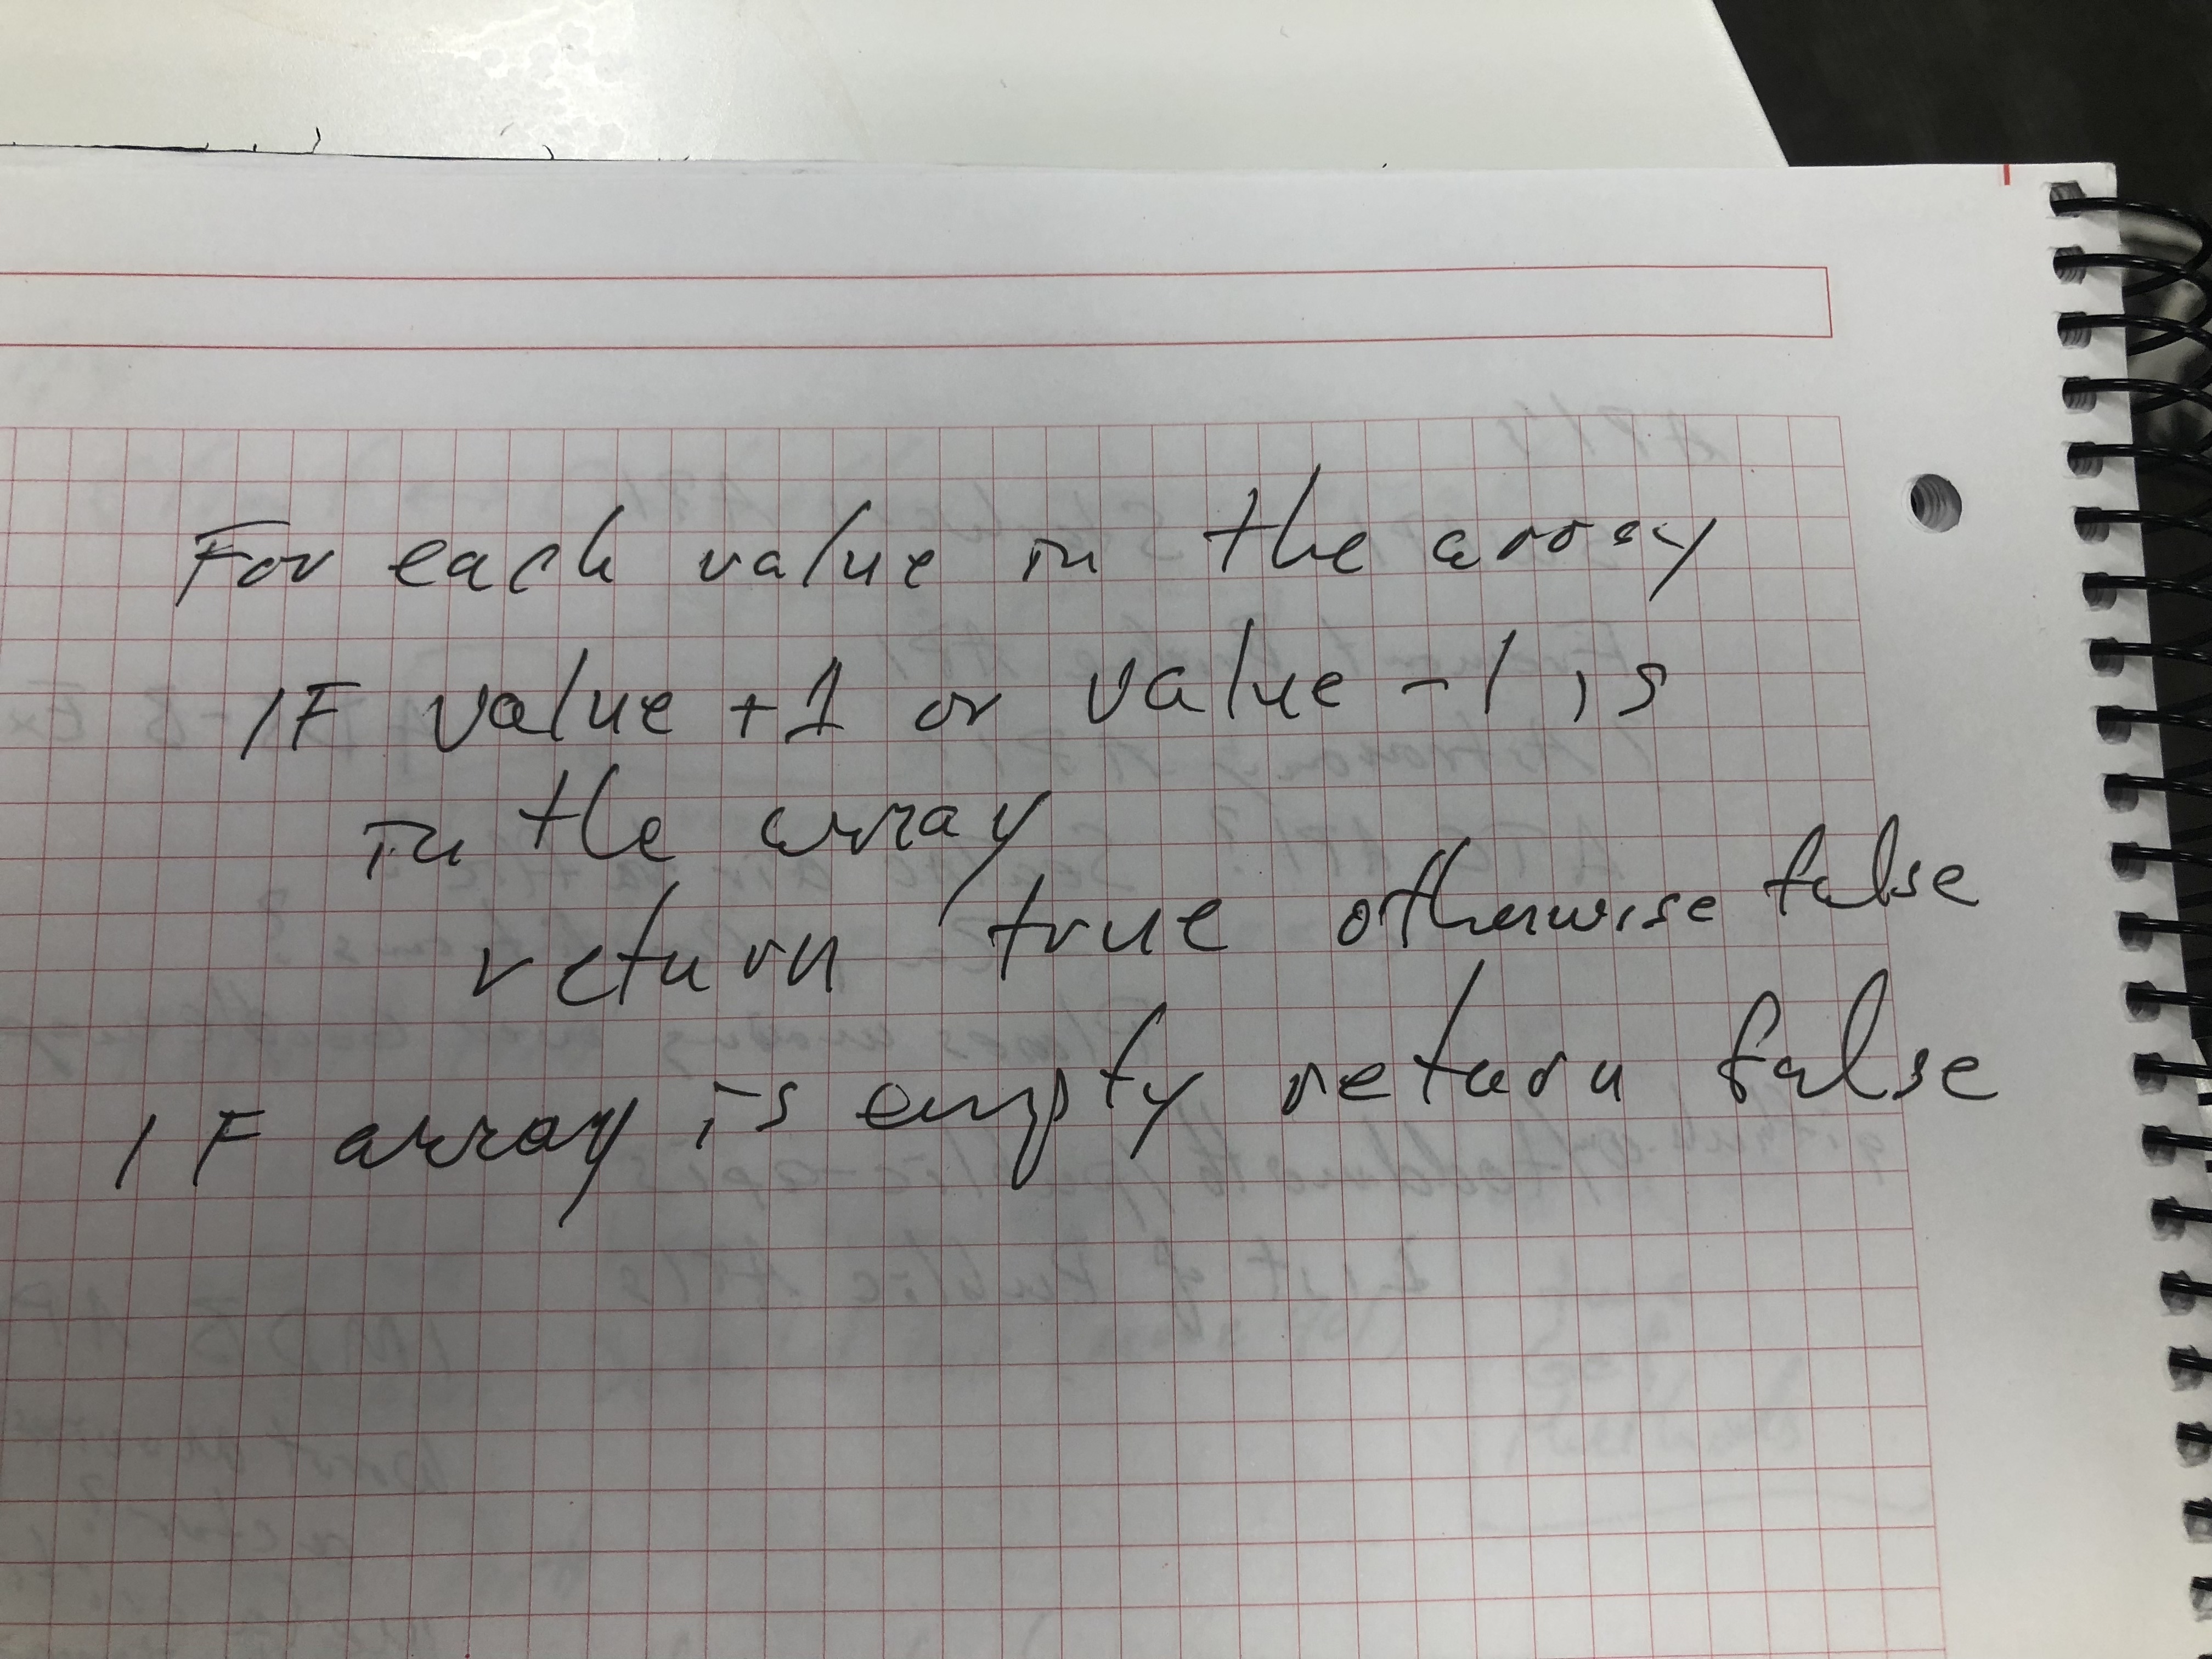 For each value in the array
IF value +1 or value -1 is
in the array
return true otherwise false
IF array is empty return false